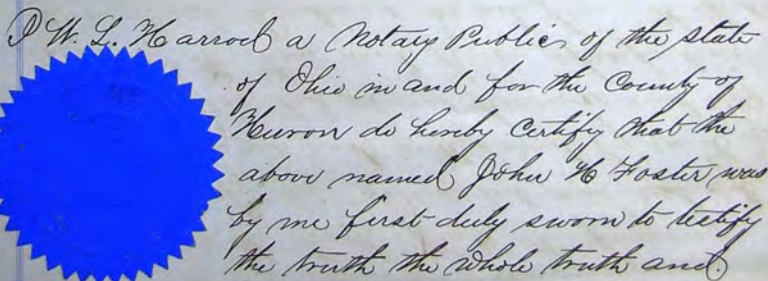 I W. L. Harrod a Notary Public of the State
of Ohio in and for the County of
Huron do hereby certify that the
above named John H Foster was
by me first duly sworn to testify
the truth the whole truth and